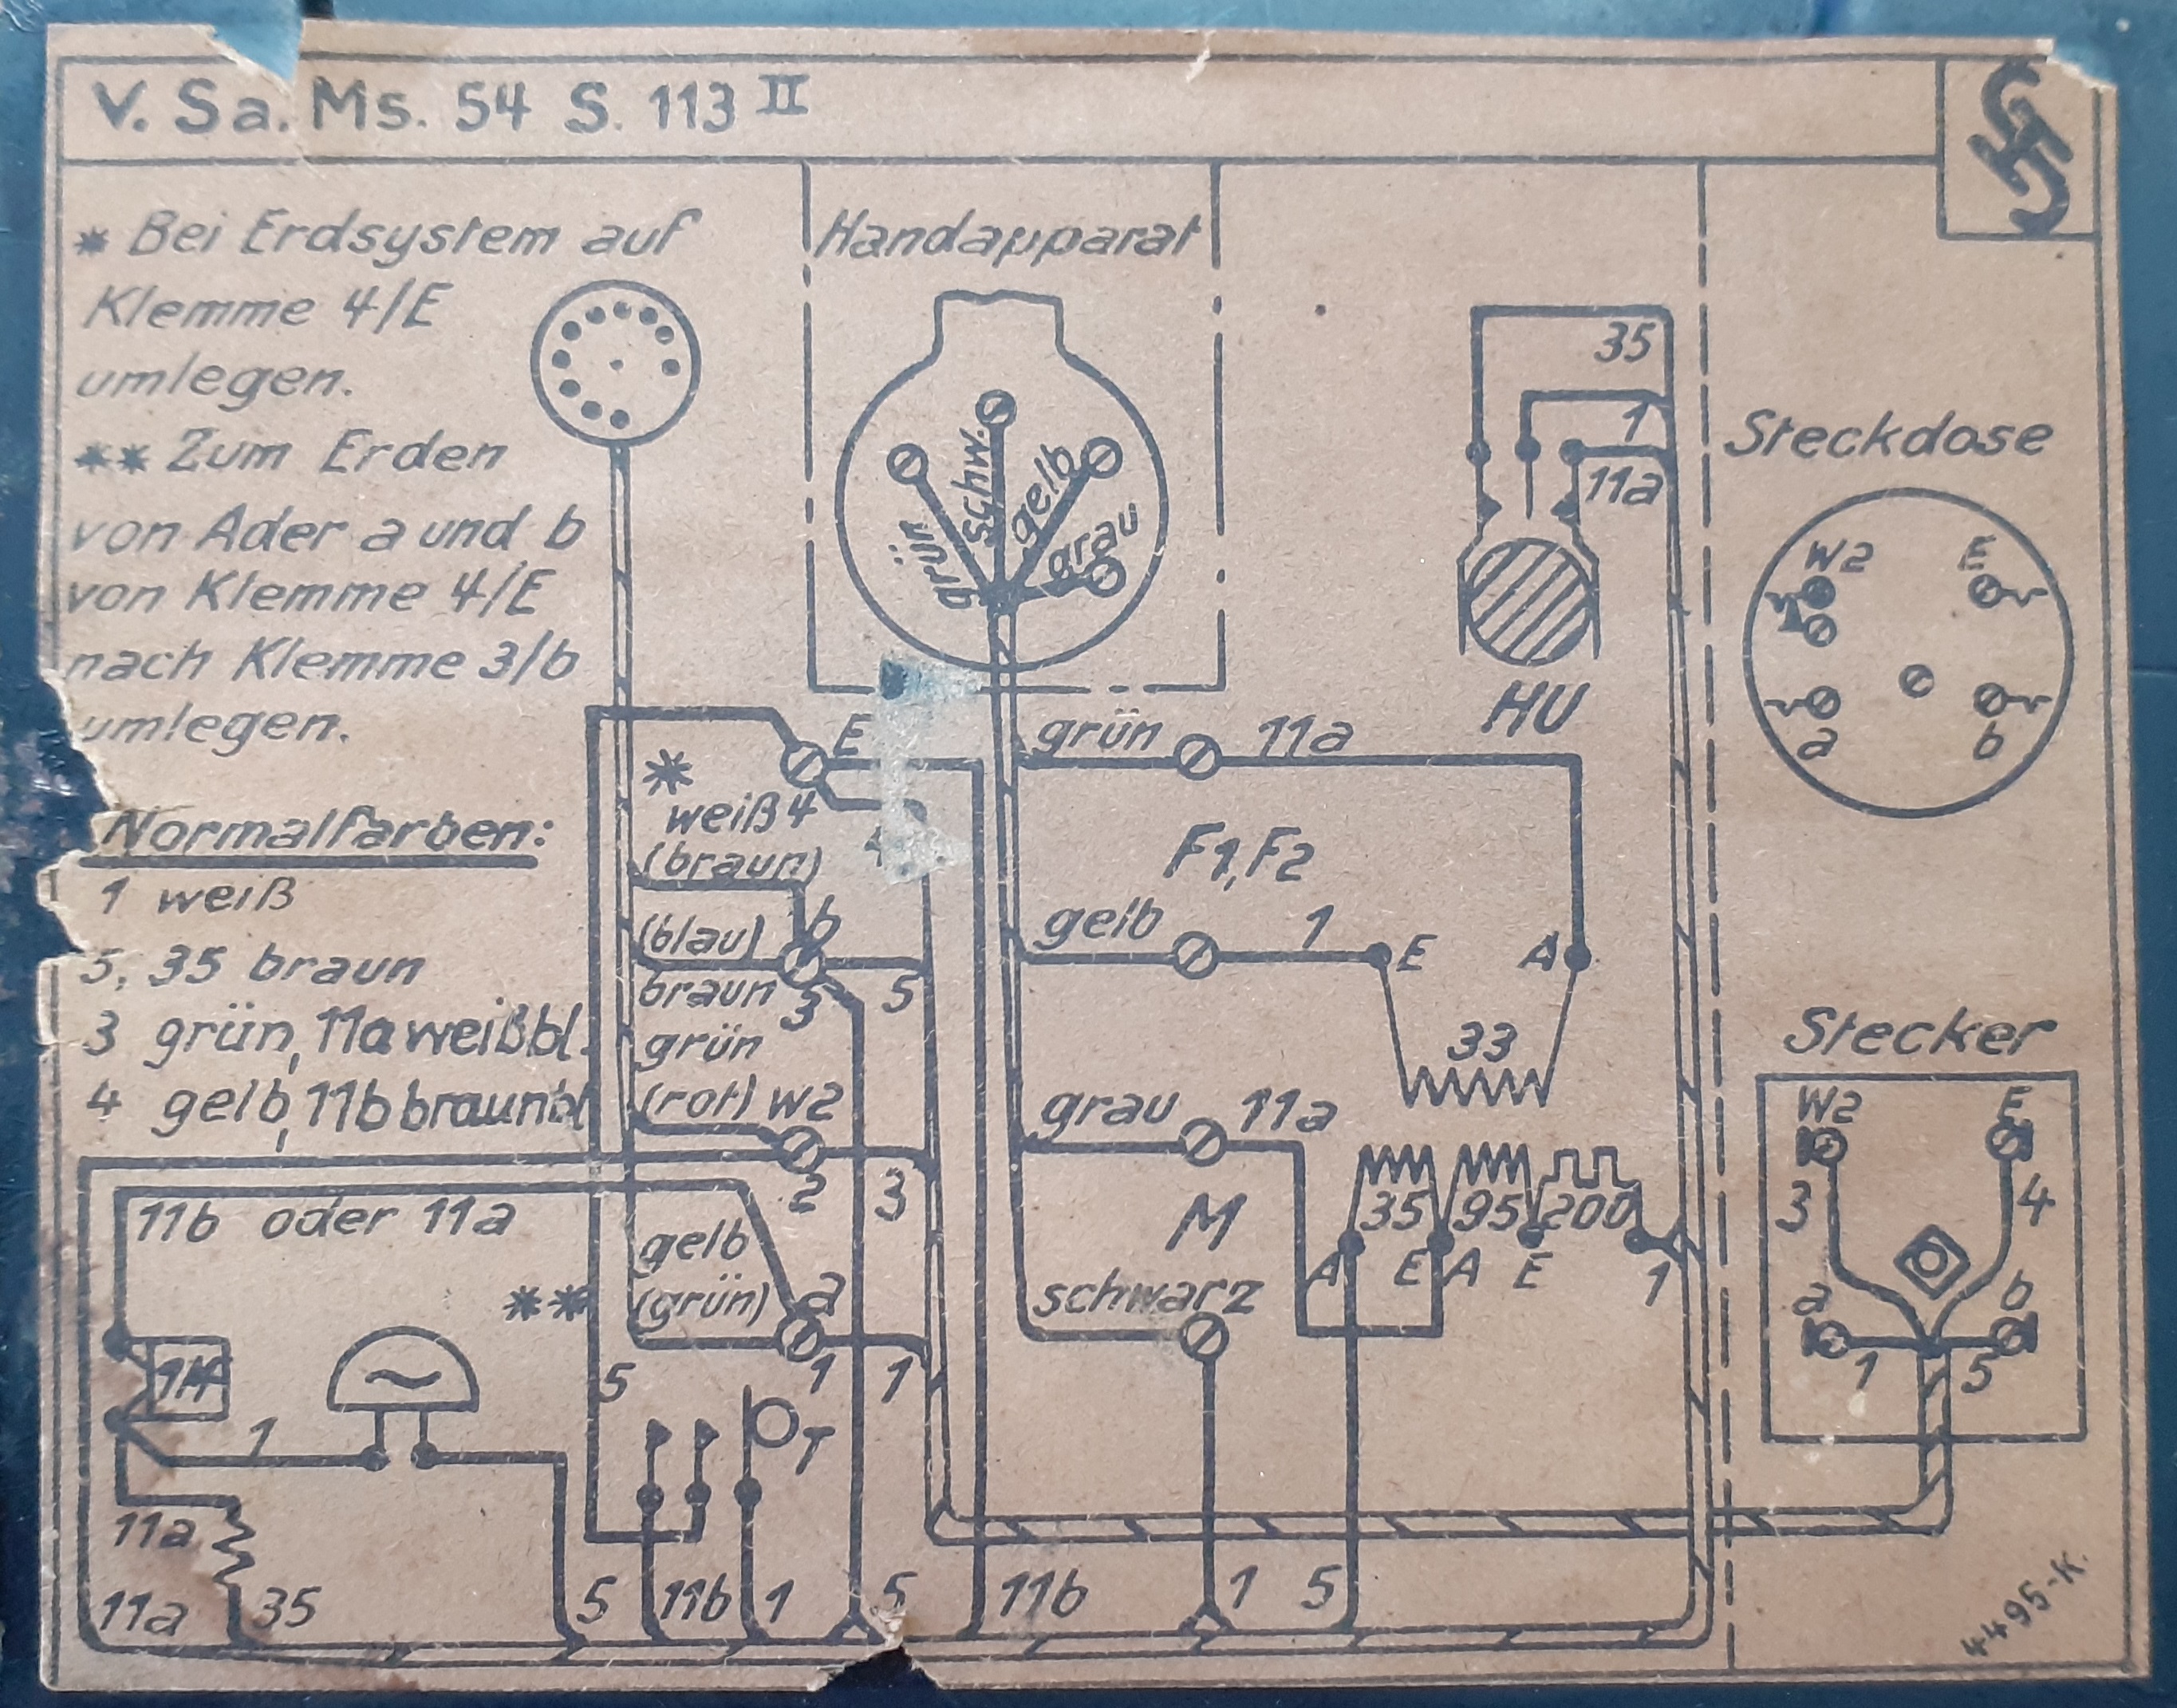 V. Sa. Ms. 54 S. 113 II
* Bei Erdsystem auf
Klemme 4/E
umlegen.
** Zum Erden
von Ader a und b
von Klemme 4/E
nach Klemme 3/b
umlegen.
Normalfarben:
1 weiß
5, 35 braun
3 grün, 11a weißbl.
4 gelb, 11b braunbl
Handapparat
grün
schw.
gelb
grau
35
1
11a
HU
Steckdose
W2 E
a b
Stecker
W2 E
3 4
a b
1 5
E
*
weiß 4
(braun)
(blau) b
braun 3 5
grün
(rot) W2
2 3
gelb
(grün) a
** 1 1
grün 11a
F1, F2
gelb 1 E A
33
grau 11a
M
35 95 200
A E A E 1
schwarz
11b oder 11a
1
5
T
11a
11a 35 5 11b 1 5 11b 1 5
4495-K.